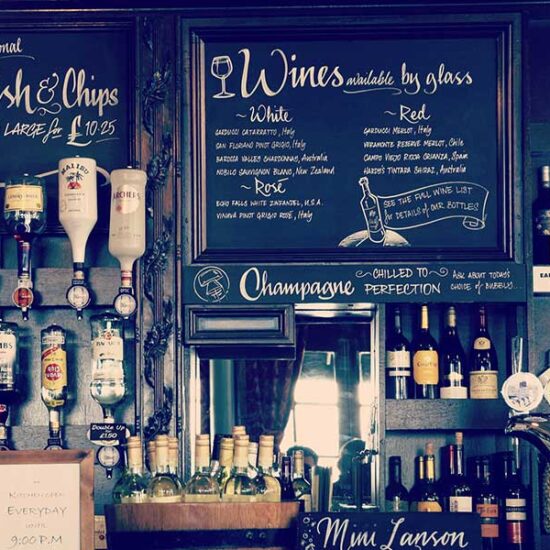 onal
sh & Chips
LARGE for £10.25
Wines available by glass
~White
CARDUCCI CATARRATTO, Italy
SAN FLORIANO PINOT GRIGIO, Italy
BAROCCA VALLEY CHARDONNAY, Australia
NOBILO SAUVIGNON BLANC, New Zealand
~Rosé~
ECHO FALLS WHITE ZINFANDEL, U.S.A.
VININA PINOT GRIGIO ROSÉ, Italy
~Red
CARDUCCI MERLOT, Italy
VERAMONTE RESERVE MERLOT, Chile
CAMPO VIEJO RIOJA CRIANZA, Spain
HARDY'S TINTARA SHIRAZ, Australia
SEE THE FULL WINE LIST
for DETAILS of OUR BOTTLES
Champagne ~CHILLED TO~ PERFECTION
ASK ABOUT TODAY'S
CHOICE OF BUBBLY...
MALIBU
ARCHERS
BACARDI
Double Up
£1.50
KITCHEN OPEN
EVERYDAY
UNTIL
9:00 P.M
Mini Lanson